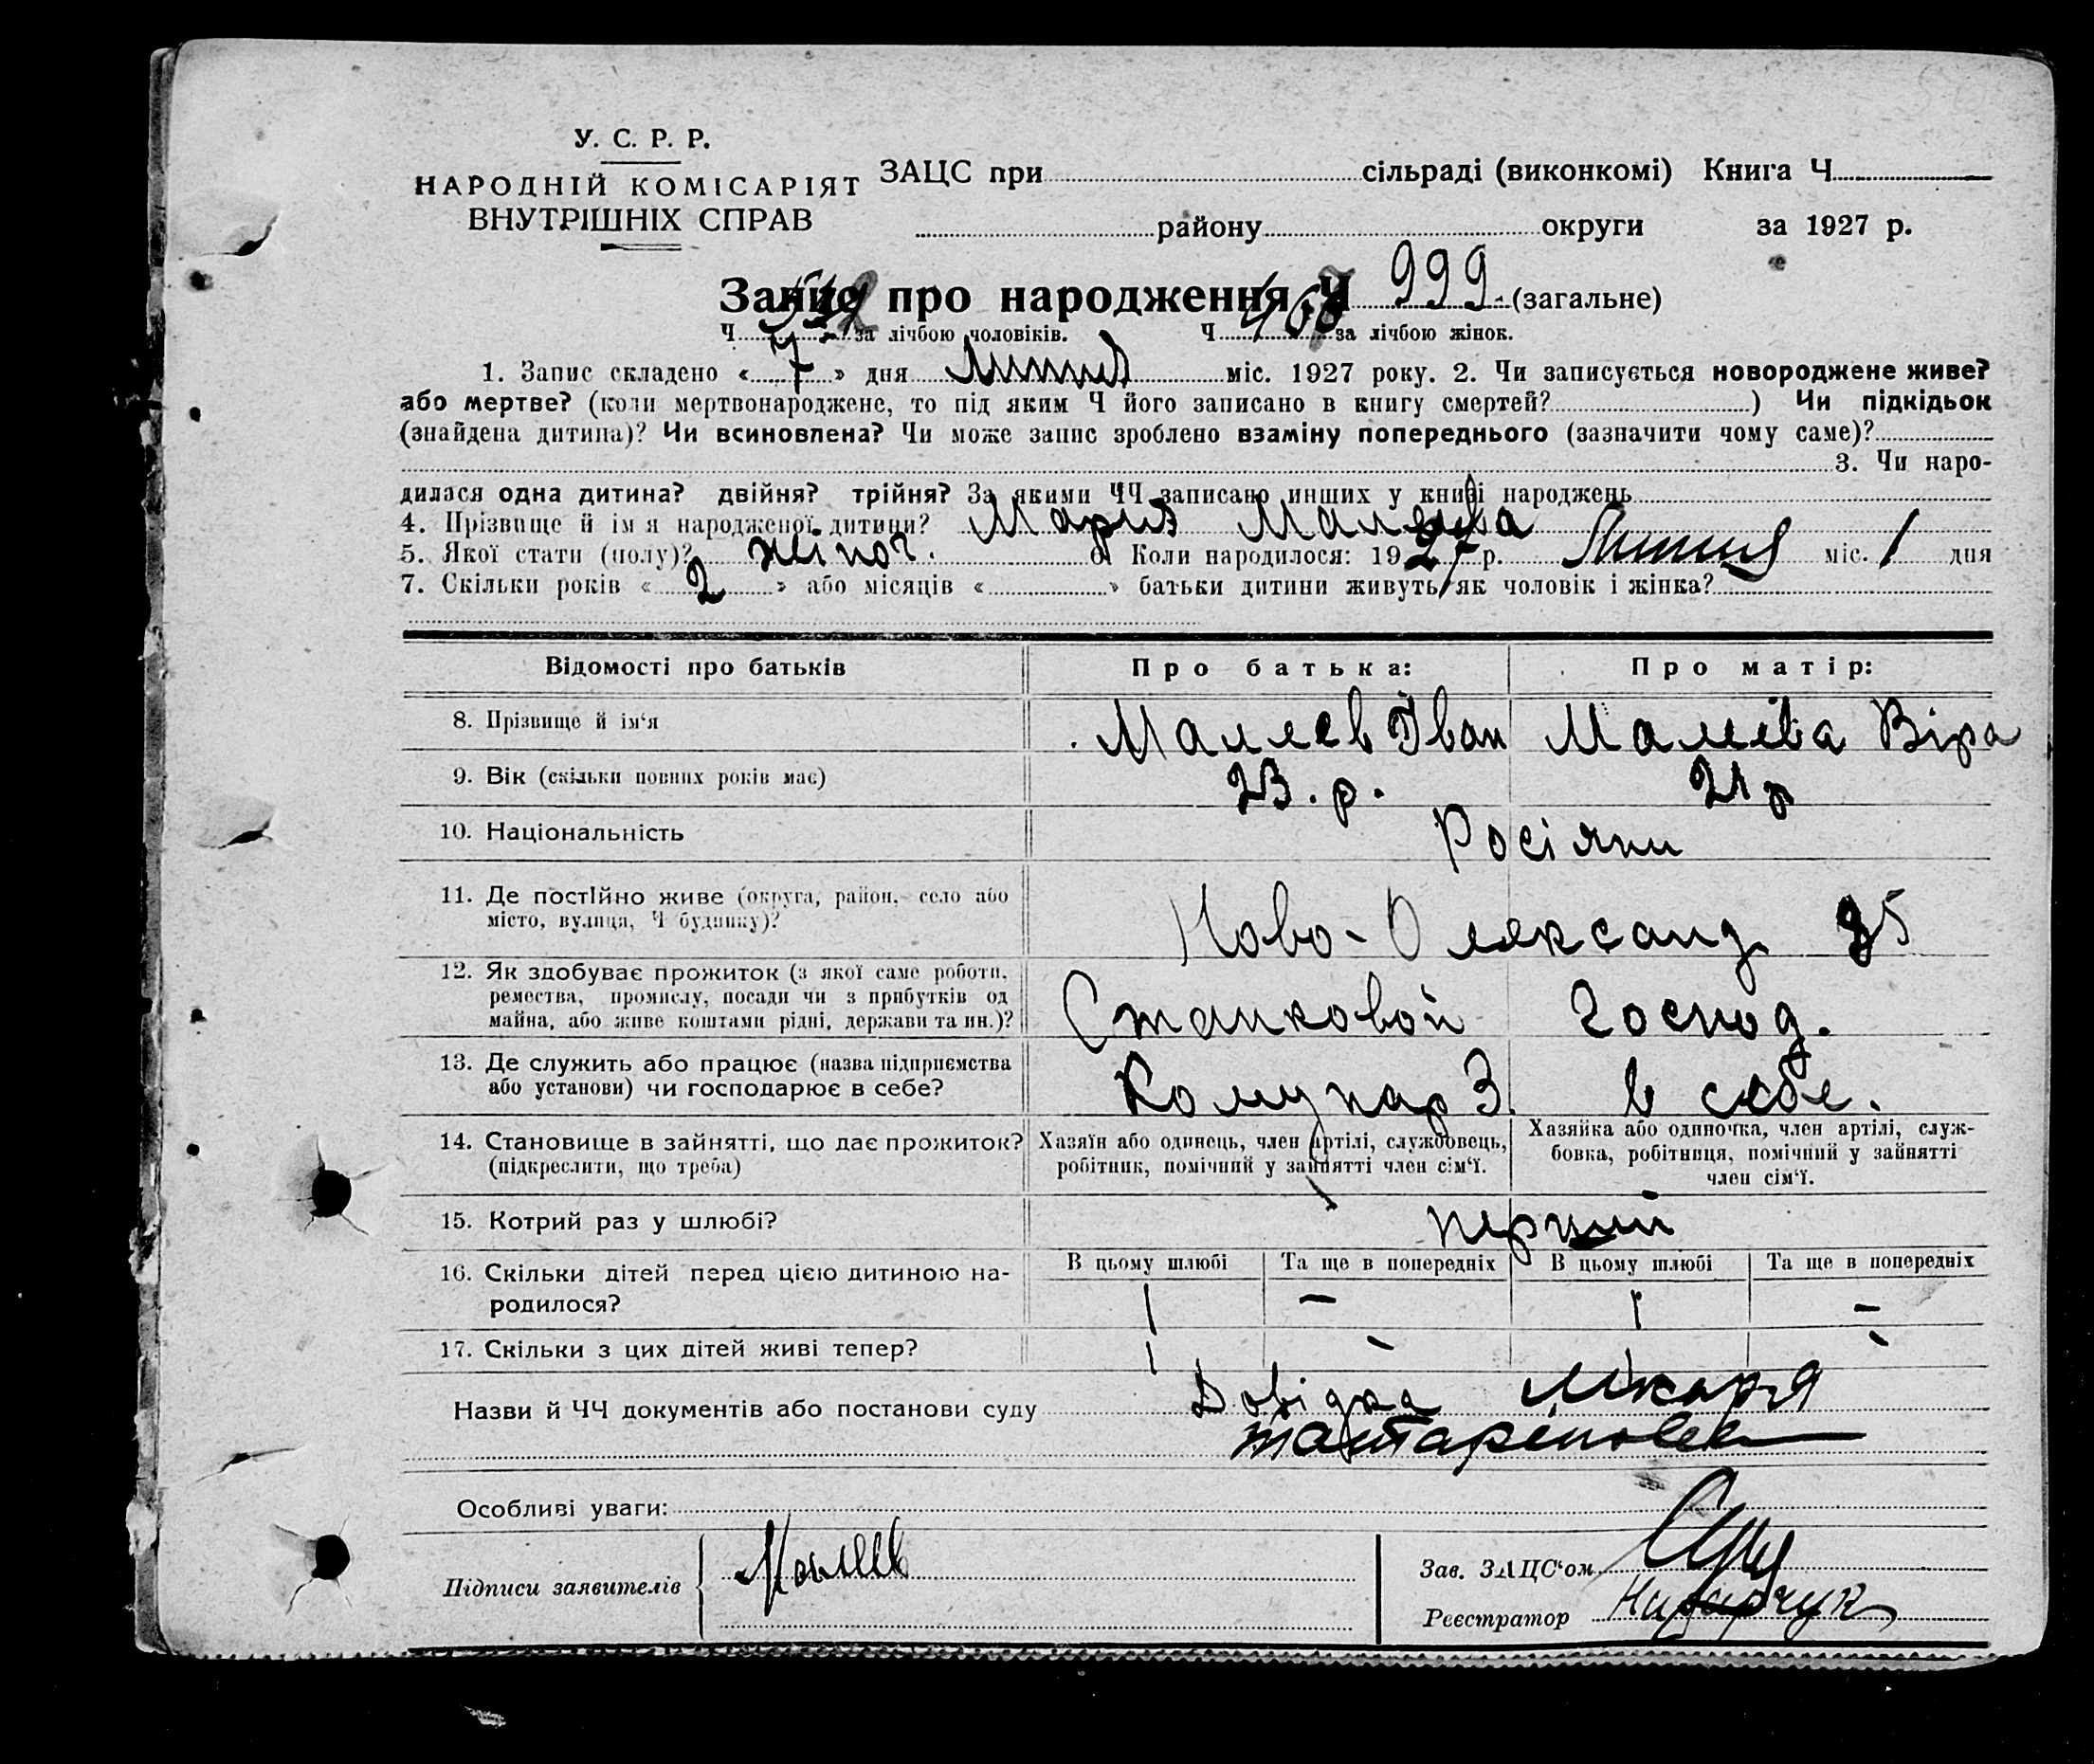 У. С. Р. Р.
НАРОДНІЙ КОМІСАРІЯТ
ВНУТРІШНІХ СПРАВ
ЗАЦС при сільраді (виконкомі) Книга Ч
району округи за 1927 р.
Запис про народження Ч 999 (загальне)
Ч за лічбою чоловіків. Ч за лічбою жінок.
1. Запис складено «7» дня Липня міс. 1927 року. 2. Чи записується новороджене живе?
або мертве? (коли мертвонароджене, то під яким Ч його записано в книгу смертей? ) Чи підкідьок
(знайдена дитина)? Чи всиновлена? Чи може запис зроблено взаміну попереднього (зазначити чому саме)?
3. Чи наро-
дилася одна дитина? двійня? трійня? За якими ЧЧ записано инших у книзі народжень
4. Прізвище й ім я народженої дитини? Мария Малеева
5. Якої стати (полу)? жіноч. 6 Коли народилося: 1927 р. Липня міс. 1 дня
7. Скільки років «2» або місяців « » батьки дитини живуть як чоловік і жінка?
Відомості про батьків Про батька: Про матір:
8. Прізвище й ім‘я Малеев Іван Малеева Віра
9. Вік (скільки повних років має) 23. р. 21 р
10. Національність Росіяни
11. Де постійно живе (округа, район, село або
місто, вулиця, Ч будинку)? Ново-Олександ. 35
12. Як здобуває прожиток (з якої саме роботи,
ремества, промислу, посади чи з прибутків од
майна, або живе коштами рідні, держави та ин.)? Станковой Господ.
13. Де служить або працює (назва підприємства
або установи) чи господарює в себе? Комунар З. в себе.
14. Становище в зайнятті, що дає прожиток?
(підкреслити, що треба)
Хазяїн або одинець, член артілі, службовець,
робітник, помічний у зайнятті член сім‘ї.
Хазяйка або одиночка, член артілі, служ-
бовка, робітниця, помічний у зайнятті
член сім‘ї.
15. Котрий раз у шлюбі? перший
16. Скільки дітей перед цією дитиною на-
родилося?
В цьому шлюбі Та ще в попередніх В цьому шлюбі Та ще в попередніх
1 – 1 –
17. Скільки з цих дітей живі тепер? 1 - -
Назви й ЧЧ документів або постанови суду Довідка лікаря
Особливі уваги:
Підписи заявителів Малеев
Зав. ЗАЦС‘ом
Реєстратор